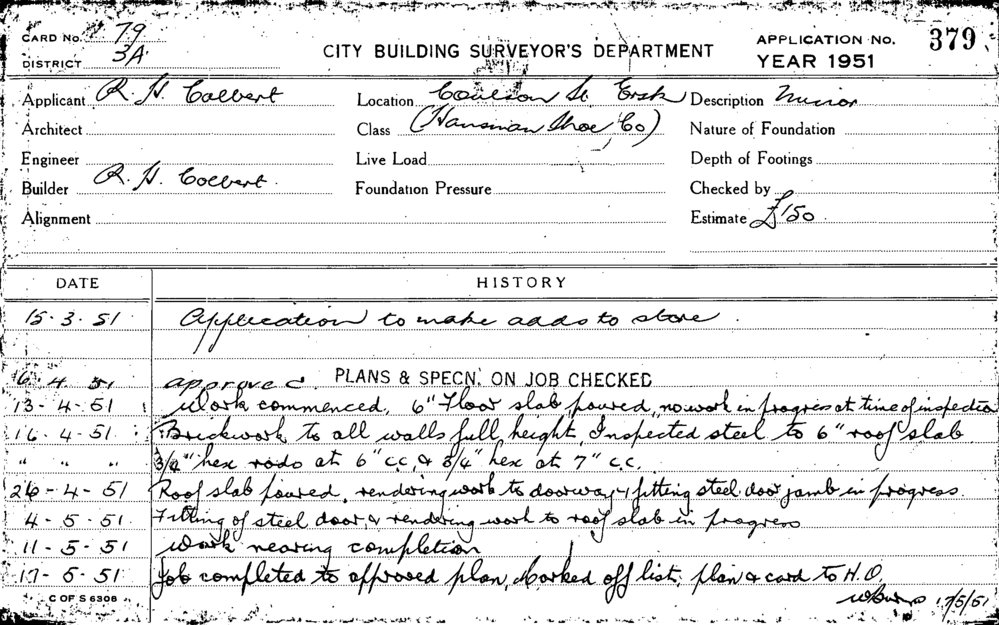 CARD No. 79
DISTRICT 3A
CITY BUILDING SURVEYOR'S DEPARTMENT
APPLICATION No. 379
YEAR 1951
Applicant R. H. Colbert
Location Coulson St. Ersk
Description Minor
Architect
Class (Hansman Shoe Co)
Nature of Foundation
Engineer
Live Load
Depth of Footings
Builder R. H. Colbert
Foundation Pressure
Checked by
Alignment
Estimate £150
DATE HISTORY
15. 3. 51 Application to make adds to store.
6. 4. 51 approved. PLANS & SPECN. ON JOB CHECKED
13-4-51 Work commenced, 6" Floor slab poured, no work in progress at time of inspection
16. 4. 51. Brickwork to all walls full height, Inspected steel to 6" roof slab
" " " 3/4" hex rods at 6" c.c. & 3/4" hex at 7" c.c.
26-4-51 Roof slab poured, rendering work to doorway & fitting steel door jamb in progress.
4-5-51. Fitting of steel door, & rendering work to roof slab in progress
11-5-51 Work nearing completion
17-5-51 Job completed to approved plan, Marked off list, plan & card to H.O.
17/5/51
C OF S 6308